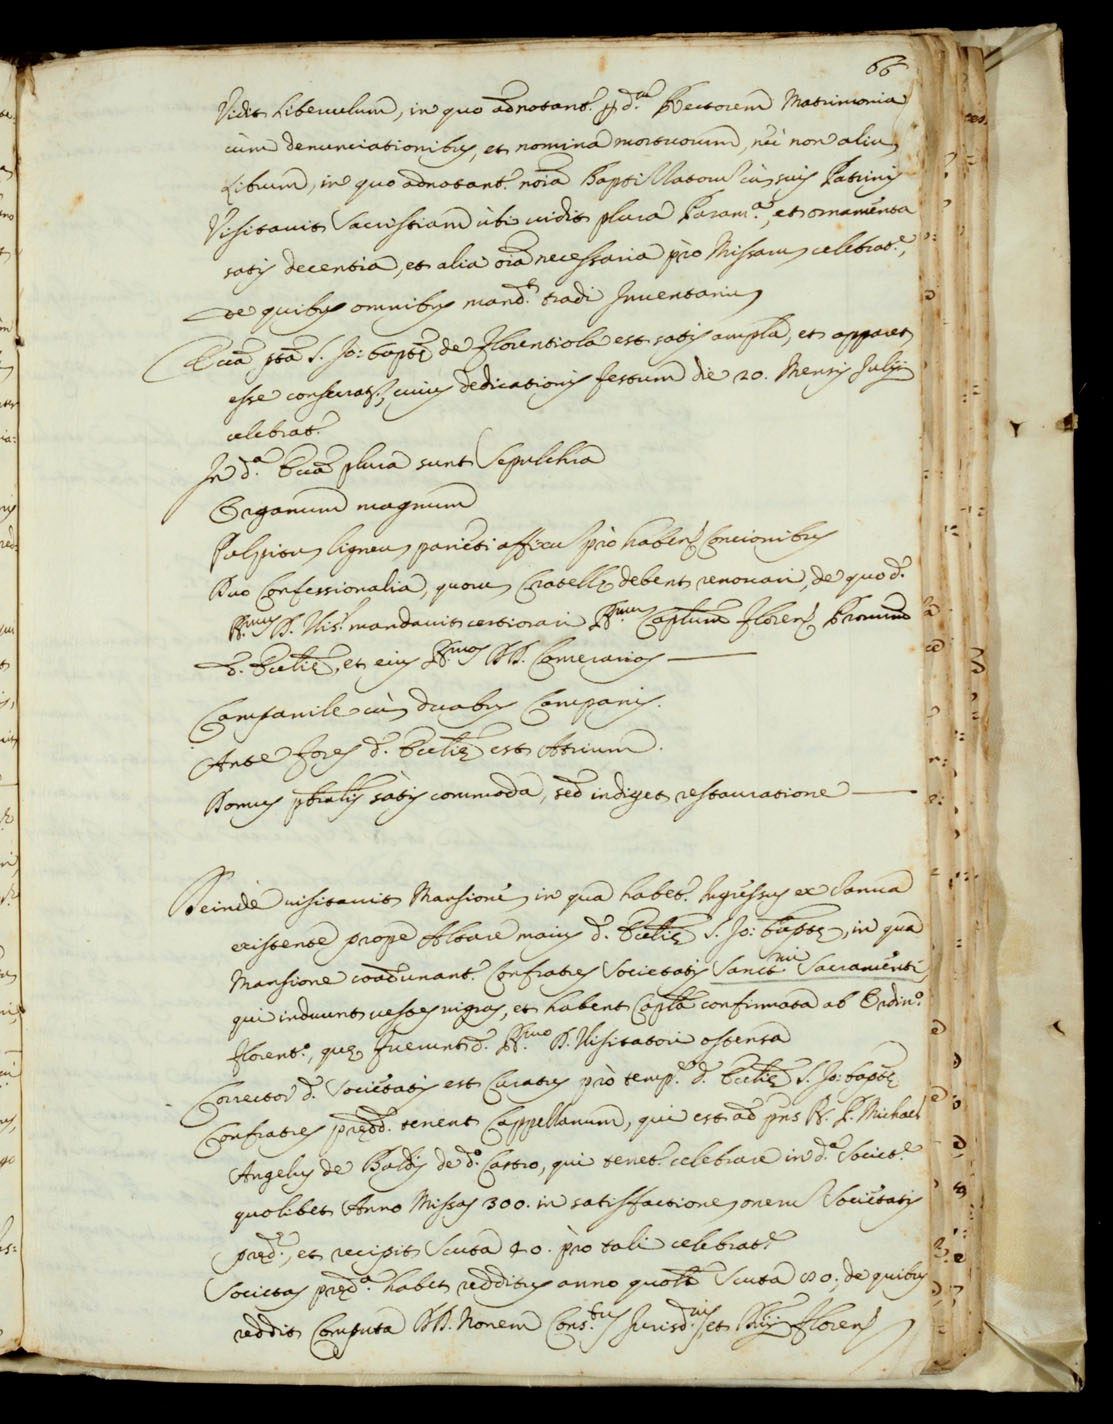 66
Vidit Libervulum, in quo adnotant.r p d.um Rectorem Matrimonia
cum denunciationibus, et nomina mortuorum, nec non alium
Librum, in quo adnotant.r noia Baptizatorum cum suis Patrinis
Visitavit Sacristiam ubi vidit plura Param.a, et ornamenta
satis decentia, et alia oia necessaria pro Missarum celebrat.e,
de quibus omnibus mand.t tradi Inventarium
Eccia pta S. Jo: bapte de Florentiola est satis ampla, et apparet
esse consecrat., cuius dedicationis festum die 20. Mensis Julii
celebrat.r
In d.a Eccia plura sunt Sepulchra
Organum magnum
Pulpitum ligneum parieti affixum pro habend. Concionibus
Duo Confessionalia, quorum Cratellę debent renovari, de quo d.
R.mus D. Vis.r mandavit certiorari R.mum Caplum Floren.
d. Ecclię, et eius R.mos DD. Camerarios
Campanile cum duabus Campanis.
Ante fores d. Ecclię est Atrium.
Domus pbralis satis commoda, sed indiget restauratione
Deinde visitavit Mansionem in qua habet.r Ingressus ex Janua
existente prope Altare maius d. Ecclię S. Jo: baptę, in qua
Mansione coadunant.r Confratres Societatis Sanct.mi Sacramenti
qui induunt vestes nigras, et habent Capla confirmata ab Ordin.o
florent.o, quę fuerunt d. R.mo D. Visitatori ostensa
Corrector d. Societatis est Curatus pro temp.e d. Ecclię S. Jo: baptę
Confratres prędd. tenent Cappellanum, qui est ad pns R. P. Michael
Angelus de Baldis de d.o Castro, qui tenet.r celebrare in d.a Societ.e
quolibet Anno Missas 300. in satisfactionem onerum Societatis
pręd.ę, et recipit Scuta 40. pro tali celebrat.e
Societas pręd.a habet redditus anno quolt Scuta 80; de quibus
reddit Computa DD. Nonem Cons.rijs Jurisd.nis et Floren.